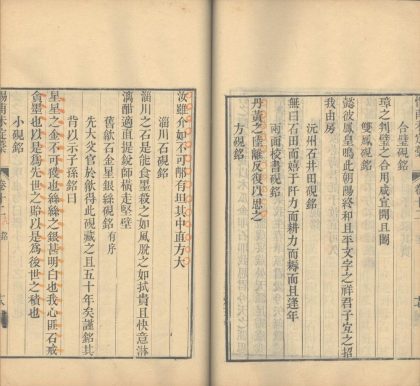 合璧硯銘
璋之判璧之合用咸宜闢且闔
雙鳳硯銘
懿彼鳳皇鳴此朝陽終和且平文字之祥君子宜之招
我由房
沅州石井田硯銘
無曰石田而嬉于阡力而耕力而耨而且逢年
兩面校書硯銘
丹黃之隆離反復以思之
方硯銘
汝雖介如不可郁有坦其中直方大
淄川石硯銘
淄川之石是能食墨殺之如風脫之如拭貴且快意淋
漓酣適重提銳師橫走堅壁
舊歙石金星銀絲硯銘有序
先大父官於歙得此硯藏之且五十年矣謹銘其
背以示子孫銘曰
星星之金不可侵也絲絲之銀甚明白也我心匪石戒
貪墨也以是爲先世之貽以是爲後世之積也
小硯銘